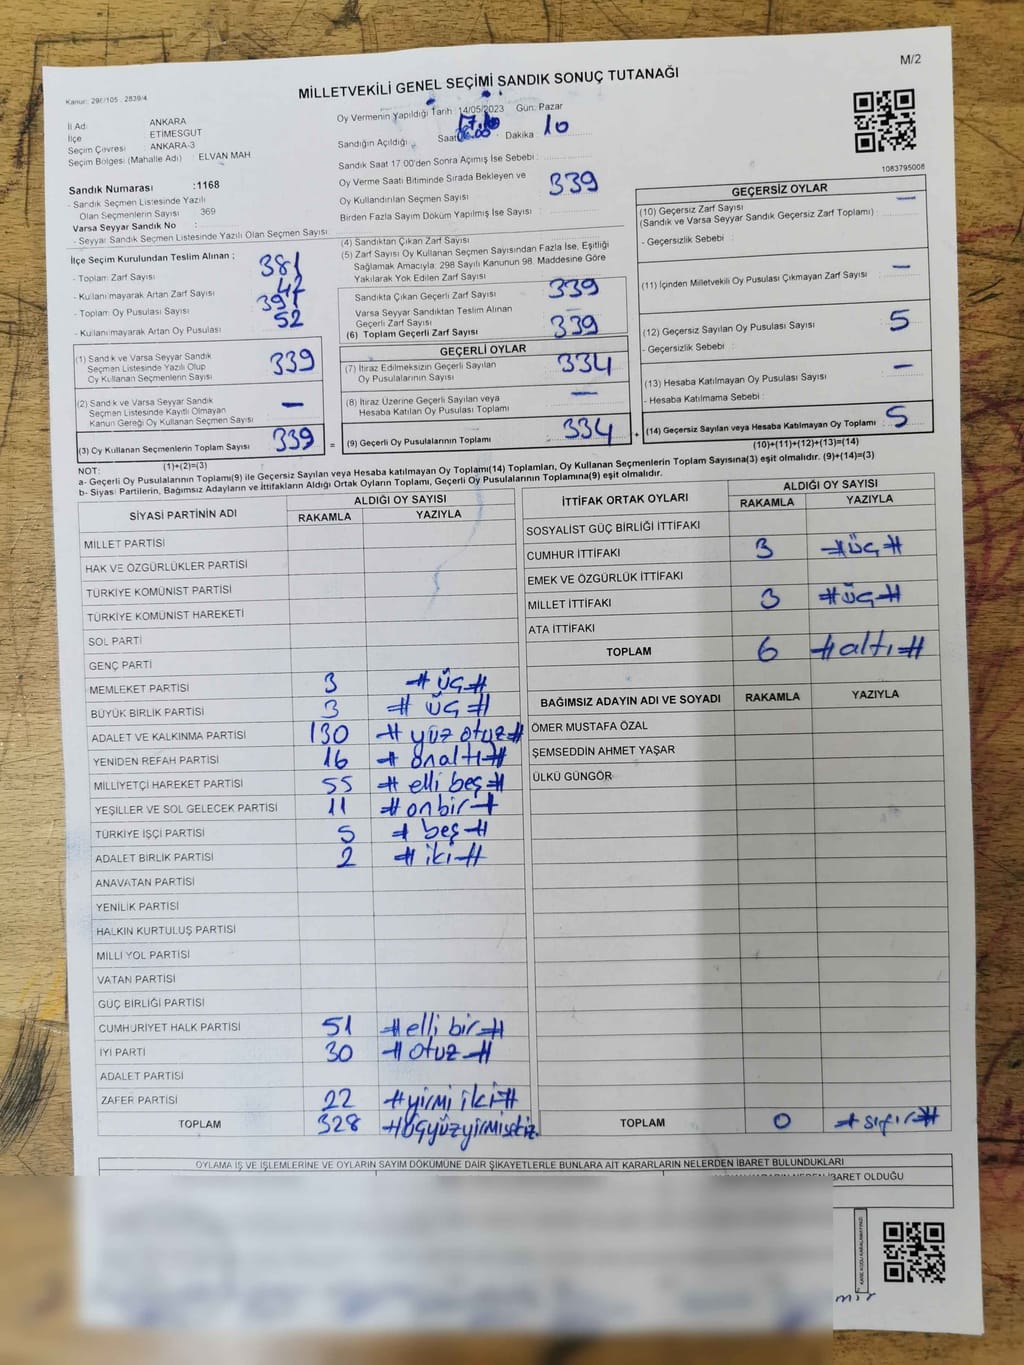 M/2
Kanun: 298/105 , 2839/4
MİLLETVEKİLİ GENEL SEÇİMİ SANDIK SONUÇ TUTANAĞI
İl Adı ANKARA
İlçe ETİMESGUT
Seçim Çevresi : ANKARA-3
Seçim Bölgesi (Mahalle Adı) : ELVAN MAH
Sandık Numarası :1168
- Sandık Seçmen Listesinde Yazılı
Olan Seçmenlerin Sayısı 369
Varsa Seyyar Sandık No :
- Seyyar Sandık Seçmen Listesinde Yazılı Olan Seçmen Sayısı:
Oy Vermenin Yapıldığı Tarih :14/05/2023 Gün: Pazar
Sandığın Açıldığı : Saat Dakika 10
Sandık Saat 17.00'den Sonra Açımış İse Sebebi :
Oy Verme Saati Bitiminde Sırada Bekleyen ve
Oy Kullandırılan Seçmen Sayısı 339
Birden Fazla Sayım Döküm Yapılmış İse Sayısı :
1083795008
İlçe Seçim Kurulundan Teslim Alınan ;
- Toplam Zarf Sayısı 381
- Kullanılmayarak Artan Zarf Sayısı 42
- Toplam Oy Pusulası Sayısı 391
- Kullanılmayarak Artan Oy Pusulası 52
(1) Sandık ve Varsa Seyyar Sandık
Seçmen Listesinde Yazılı Olup
Oy Kullanan Seçmenlerin Sayısı 339
(2) Sandık ve Varsa Seyyar Sandık
Seçmen Listesinde Kayıtlı Olmayan
Kanun Gereği Oy Kullanan Seçmen Sayısı –
(3) Oy Kullanan Seçmenlerin Toplam Sayısı 339 =
(1)+(2)=(3)
(4) Sandıktan Çıkan Zarf Sayısı
(5) Zarf Sayısı Oy Kullanan Seçmen Sayısından Fazla İse, Eşitliği
Sağlamak Amacıyla, 298 Sayılı Kanunun 98. Maddesine Göre
Yakılarak Yok Edilen Zarf Sayısı
Sandıkta Çıkan Geçerli Zarf Sayısı 339
Varsa Seyyar Sandıktan Teslim Alınan
Geçerli Zarf Sayısı –
(6) Toplam Geçerli Zarf Sayısı 339
GEÇERLİ OYLAR
(7) İtiraz Edilmeksizin Geçerli Sayılan
Oy Pusulalarının Sayısı 334
(8) İtiraz Üzerine Geçerli Sayılan veya
Hesaba Katılan Oy Pusulası Toplamı –
(9) Geçerli Oy Pusulalarının Toplamı 334 +
GEÇERSİZ OYLAR
(10) Geçersiz Zarf Sayısı –
(Sandık ve Varsa Seyyar Sandık Geçersiz Zarf Toplamı) :
- Geçersizlik Sebebi :
(11) İçinden Milletvekili Oy Pusulası Çıkmayan Zarf Sayısı –
(12) Geçersiz Sayılan Oy Pusulası Sayısı 5
- Geçersizlik Sebebi :
(13) Hesaba Katılmayan Oy Pusulası Sayısı –
- Hesaba Katılmama Sebebi :
(14) Geçersiz Sayılan veya Hesaba Katılmayan Oy Toplamı : 5
(10)+(11)+(12)+(13)=(14)
NOT:
a- Geçerli Oy Pusulalarının Toplamı(9) ile Geçersiz Sayılan veya Hesaba katılmayan Oy Toplamı(14) Toplamları, Oy Kullanan Seçmenlerin Toplam Sayısına(3) eşit olmalıdır. (9)+(14)=(3)
b- Siyasi Partilerin, Bağımsız Adayların ve İttifakların Aldığı Ortak Oyların Toplamı, Geçerli Oy Pusulalarının Toplamına(9) eşit olmalıdır.
SİYASİ PARTİNİN ADI ALDIĞI OY SAYISI
RAKAMLA YAZIYLA
MİLLET PARTİSİ
HAK VE ÖZGÜRLÜKLER PARTİSİ
TÜRKİYE KOMÜNİST PARTİSİ
TÜRKİYE KOMÜNİST HAREKETİ
SOL PARTİ
GENÇ PARTİ
MEMLEKET PARTİSİ 3 # üç #
BÜYÜK BİRLİK PARTİSİ 3 # üç #
ADALET VE KALKINMA PARTİSİ 130 # yüz otuz #
YENİDEN REFAH PARTİSİ 16 # onaltı #
MİLLİYETÇİ HAREKET PARTİSİ 55 # elli beş #
YEŞİLLER VE SOL GELECEK PARTİSİ 11 # onbir #
TÜRKİYE İŞÇİ PARTİSİ 5 # beş #
ADALET BİRLİK PARTİSİ 2 # iki #
ANAVATAN PARTİSİ
YENİLİK PARTİSİ
HALKIN KURTULUŞ PARTİSİ
MİLLİ YOL PARTİSİ
VATAN PARTİSİ
GÜÇ BİRLİĞİ PARTİSİ
CUMHURİYET HALK PARTİSİ 51 # elli bir #
İYİ PARTİ 30 # otuz #
ADALET PARTİSİ
ZAFER PARTİSİ 22 # yirmi iki #
TOPLAM 328 # üçyüzyirmisekiz.
İTTİFAK ORTAK OYLARI ALDIĞI OY SAYISI
RAKAMLA YAZIYLA
SOSYALİST GÜÇ BİRLİĞİ İTTİFAKI
CUMHUR İTTİFAKI 3 # üç #
EMEK VE ÖZGÜRLÜK İTTİFAKI
MİLLET İTTİFAKI 3 # üç #
ATA İTTİFAKI
TOPLAM 6 # altı #
BAĞIMSIZ ADAYIN ADI VE SOYADI RAKAMLA YAZIYLA
ÖMER MUSTAFA ÖZAL
ŞEMSEDDİN AHMET YAŞAR
ÜLKÜ GÜNGÖR
TOPLAM 0 # sıfır #
OYLAMA İŞ VE İŞLEMLERİNE VE OYLARIN SAYIM DÖKÜMÜNE DAİR ŞİKAYETLERLE BUNLARA AİT KARARLARIN NELERDEN İBARET BULUNDUKLARI
İBARET OLDUĞU